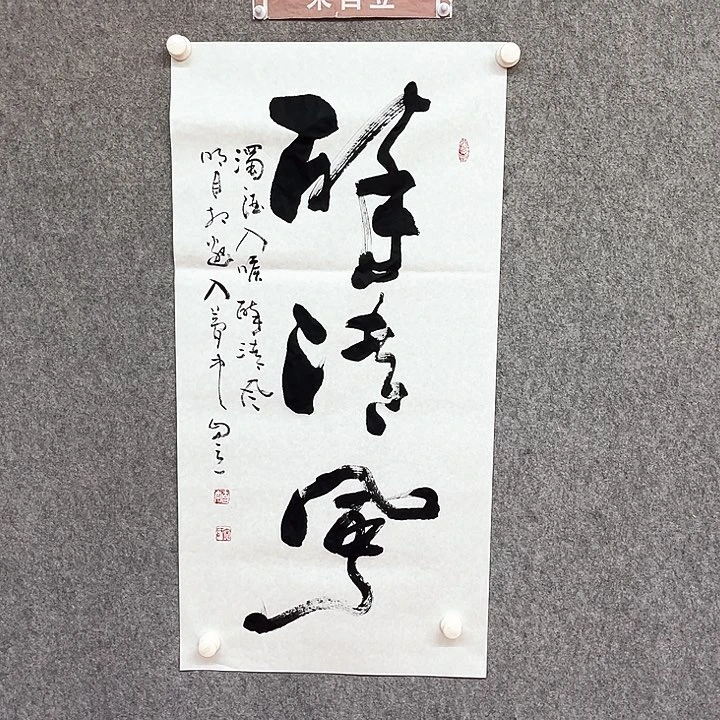 醉清風
濁酒入喉醉清风
明月相邀入夢中